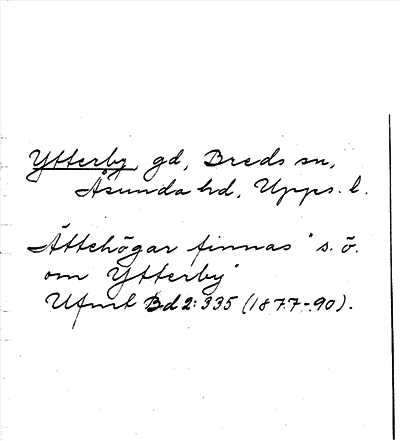 Ytterby gd, Breds sn,
Åsunda hd, Upps. l.
Ättehögar finnas "s. ö.
om Ytterby"
Ufmt Bd 2: 335 (1877-90).